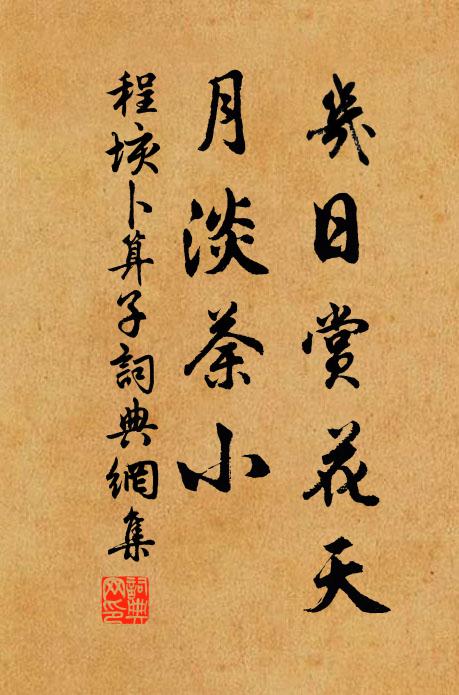 幾日賞花天
月淡荼小
程垓卜算子詞典網集
詞典
网印